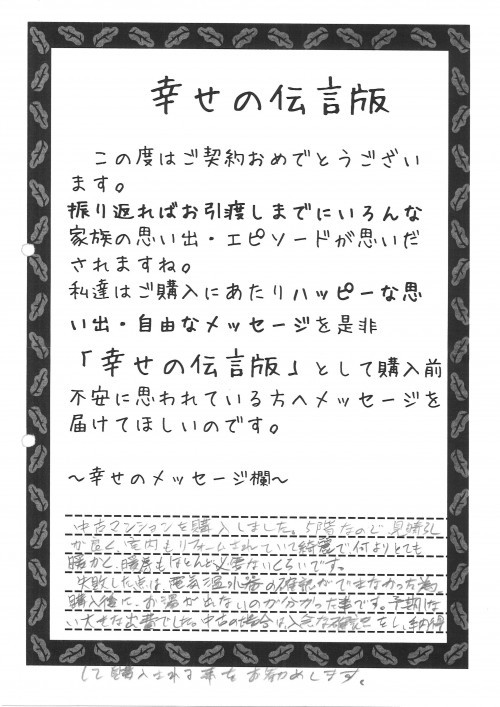 幸せの伝言版
この度はご契約おめでとうござい
ます。
振り返ればお引渡しまでにいろんな
家族の思い出・エピソードが思いだ
されますね。
私達はご購入にあたりハッピーな思
い出・自由なメッセージを是非
「幸せの伝言版」として購入前
不安に思われている方へメッセージを
届けてほしいのです。
～幸せのメッセージ欄～
中古マンションを購入しました。5階なので見晴し
が良く、室内もリフォームされていて綺麗で何よりとても
暖かく、暖房もほとんど必要ないくらいです。
失敗した点は、電気温水器の確認ができなかった為、
購入後に、お湯が出ないのが分かった事です。予期しな
い大きな出費でした。中古の場合は入念な確認をし、納得
して購入される事をお勧めします。